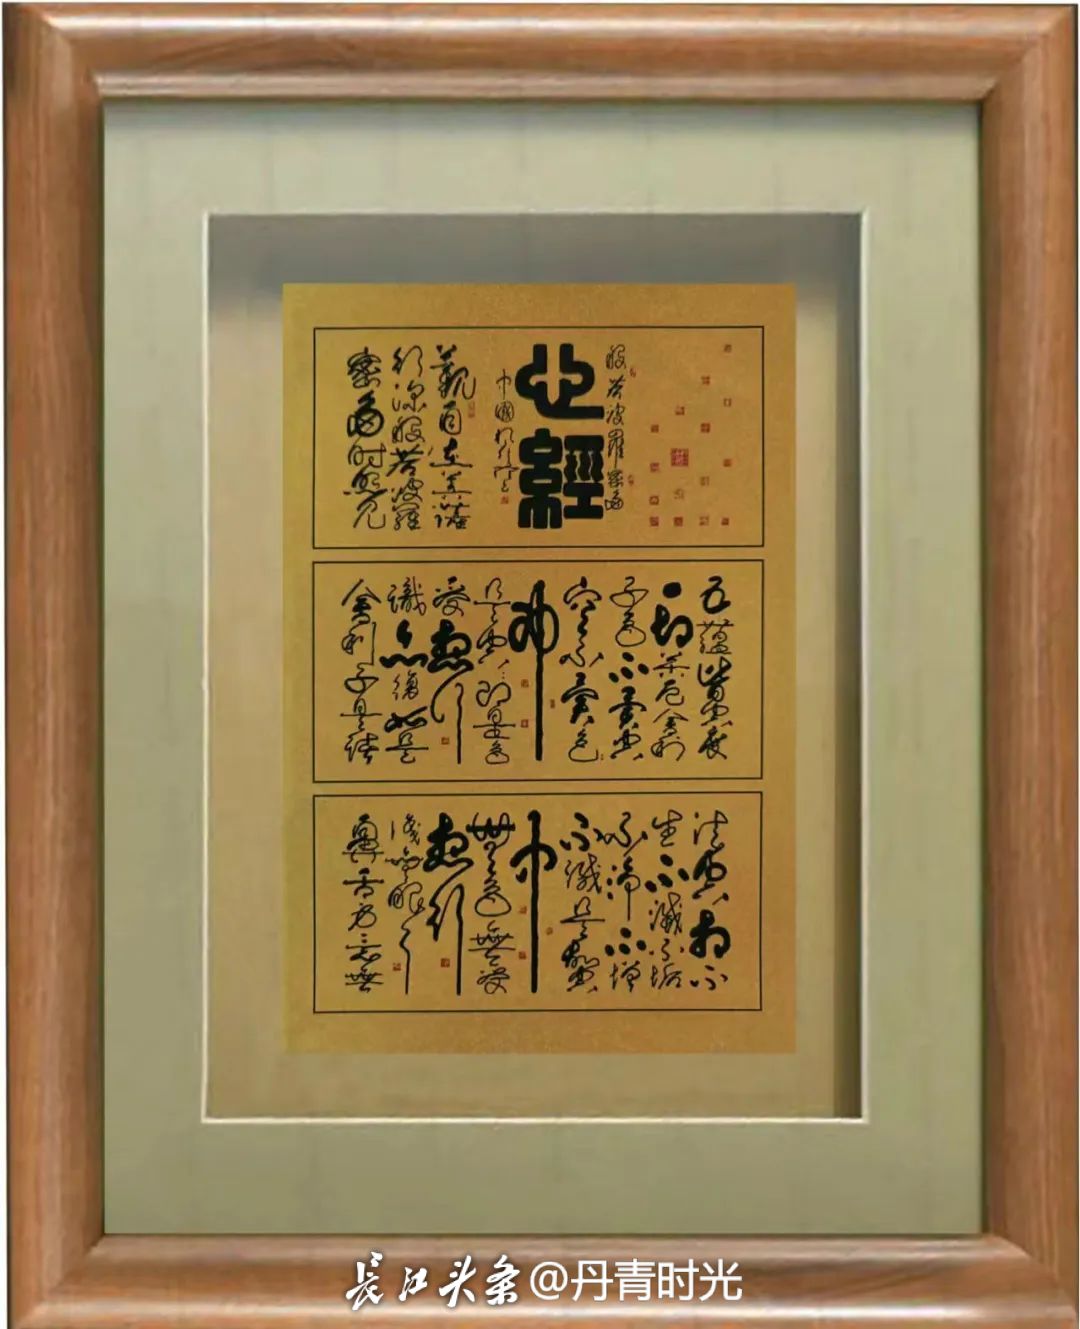 般若波羅蜜多
心經
觀自在菩薩
行深般若波羅
蜜多时照見
五蘊皆空度
一切苦厄舍利
子色不異空
空不異色
即
是空即是色
受想行
識亦復如是
舍利子是諸
法空相不
生不滅不垢
不淨不增
不減是故空
中
無色無受
想行
識無眼耳
鼻舌身意無
长江头条 @丹青时光